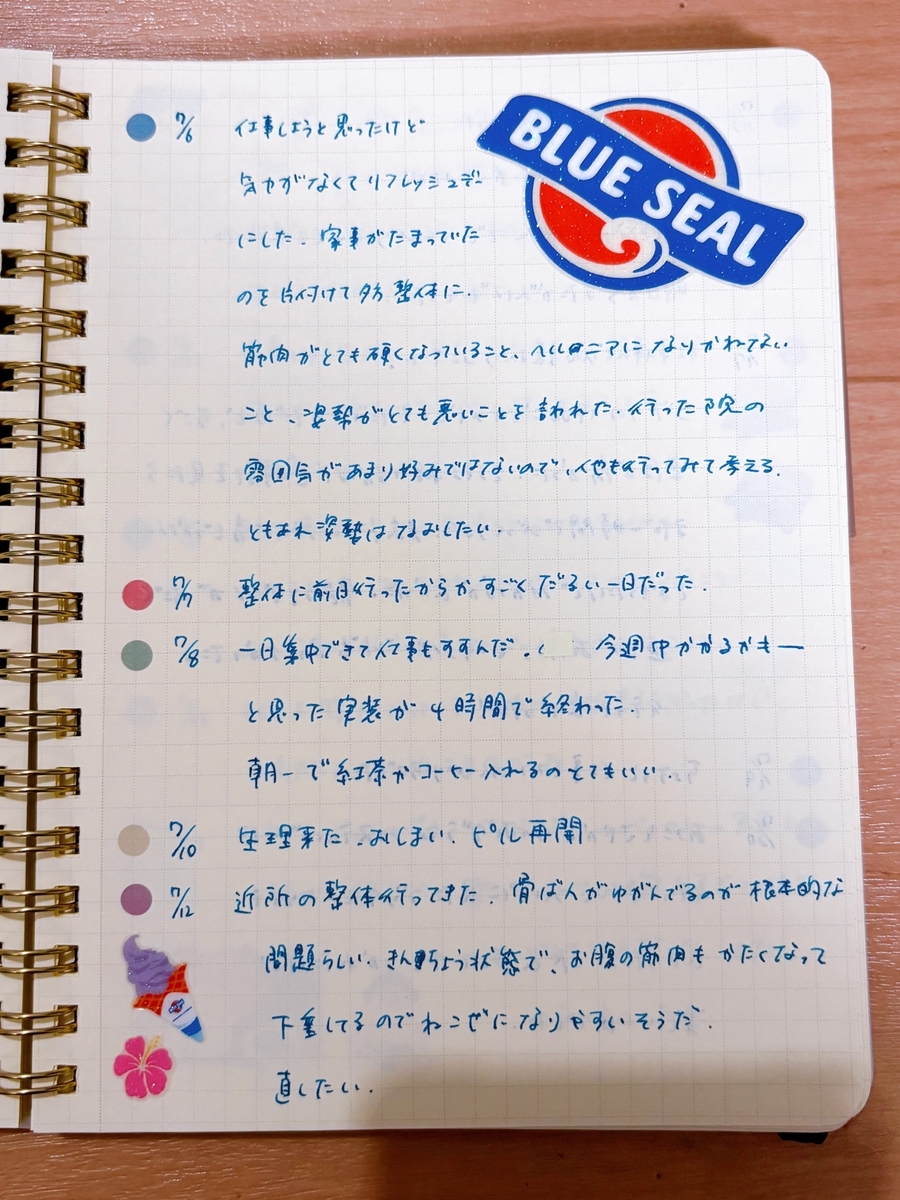 BLUE SEAL
7/6 仕事しようと思ったけど
気力がなくてリフレッシュデー
にした. 家事がたまっていた
のを片付けて夕方整体に.
筋肉がとても硬くなっていること、ヘルニアになりかねない
こと、姿勢がとても悪いことを言われた. 行った院の
雰囲気があまり好みではないので、他も行ってみて考える.
ともあれ姿勢はなおしたい.
7/7 整体に前日行ったからかすごくだるい一日だった.
7/8 一日集中できて仕事もすすんだ. 今週中かかるかもー
と思った実装が4時間で終わった.
朝一で紅茶かコーヒー入れるのとてもいい.
7/10 生理来た. おしまい. ピル再開
7/12 近所の整体行ってきた. 骨ばんがゆがんでるのが根本的な
問題らしい. きんちょう状態で、お腹の筋肉もかたくなって
下垂してるのでねこぜになりやすいそうだ.
直したい.